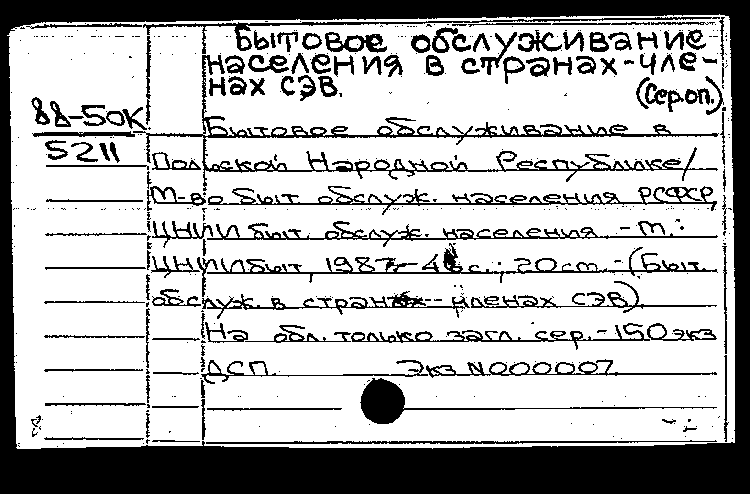 Бытовое обслуживание
населения в странах-чле-
нах СЭВ.
(Сер.оп.)
88-50К
5211
Бытовое обслуживание в
Польской Народной Республике/
М-во быт. обслуж. населения РСФСР,
ЦНИИ быт. обслуж. населения - М.:
ЦНИИбыт, 1987.- 46 с.; 20 cm. - (Быт.
обслуж. в странах - членах СЭВ).
На обл. только загл. сер. - 150 экз
ДСП. Экз N000007.
8